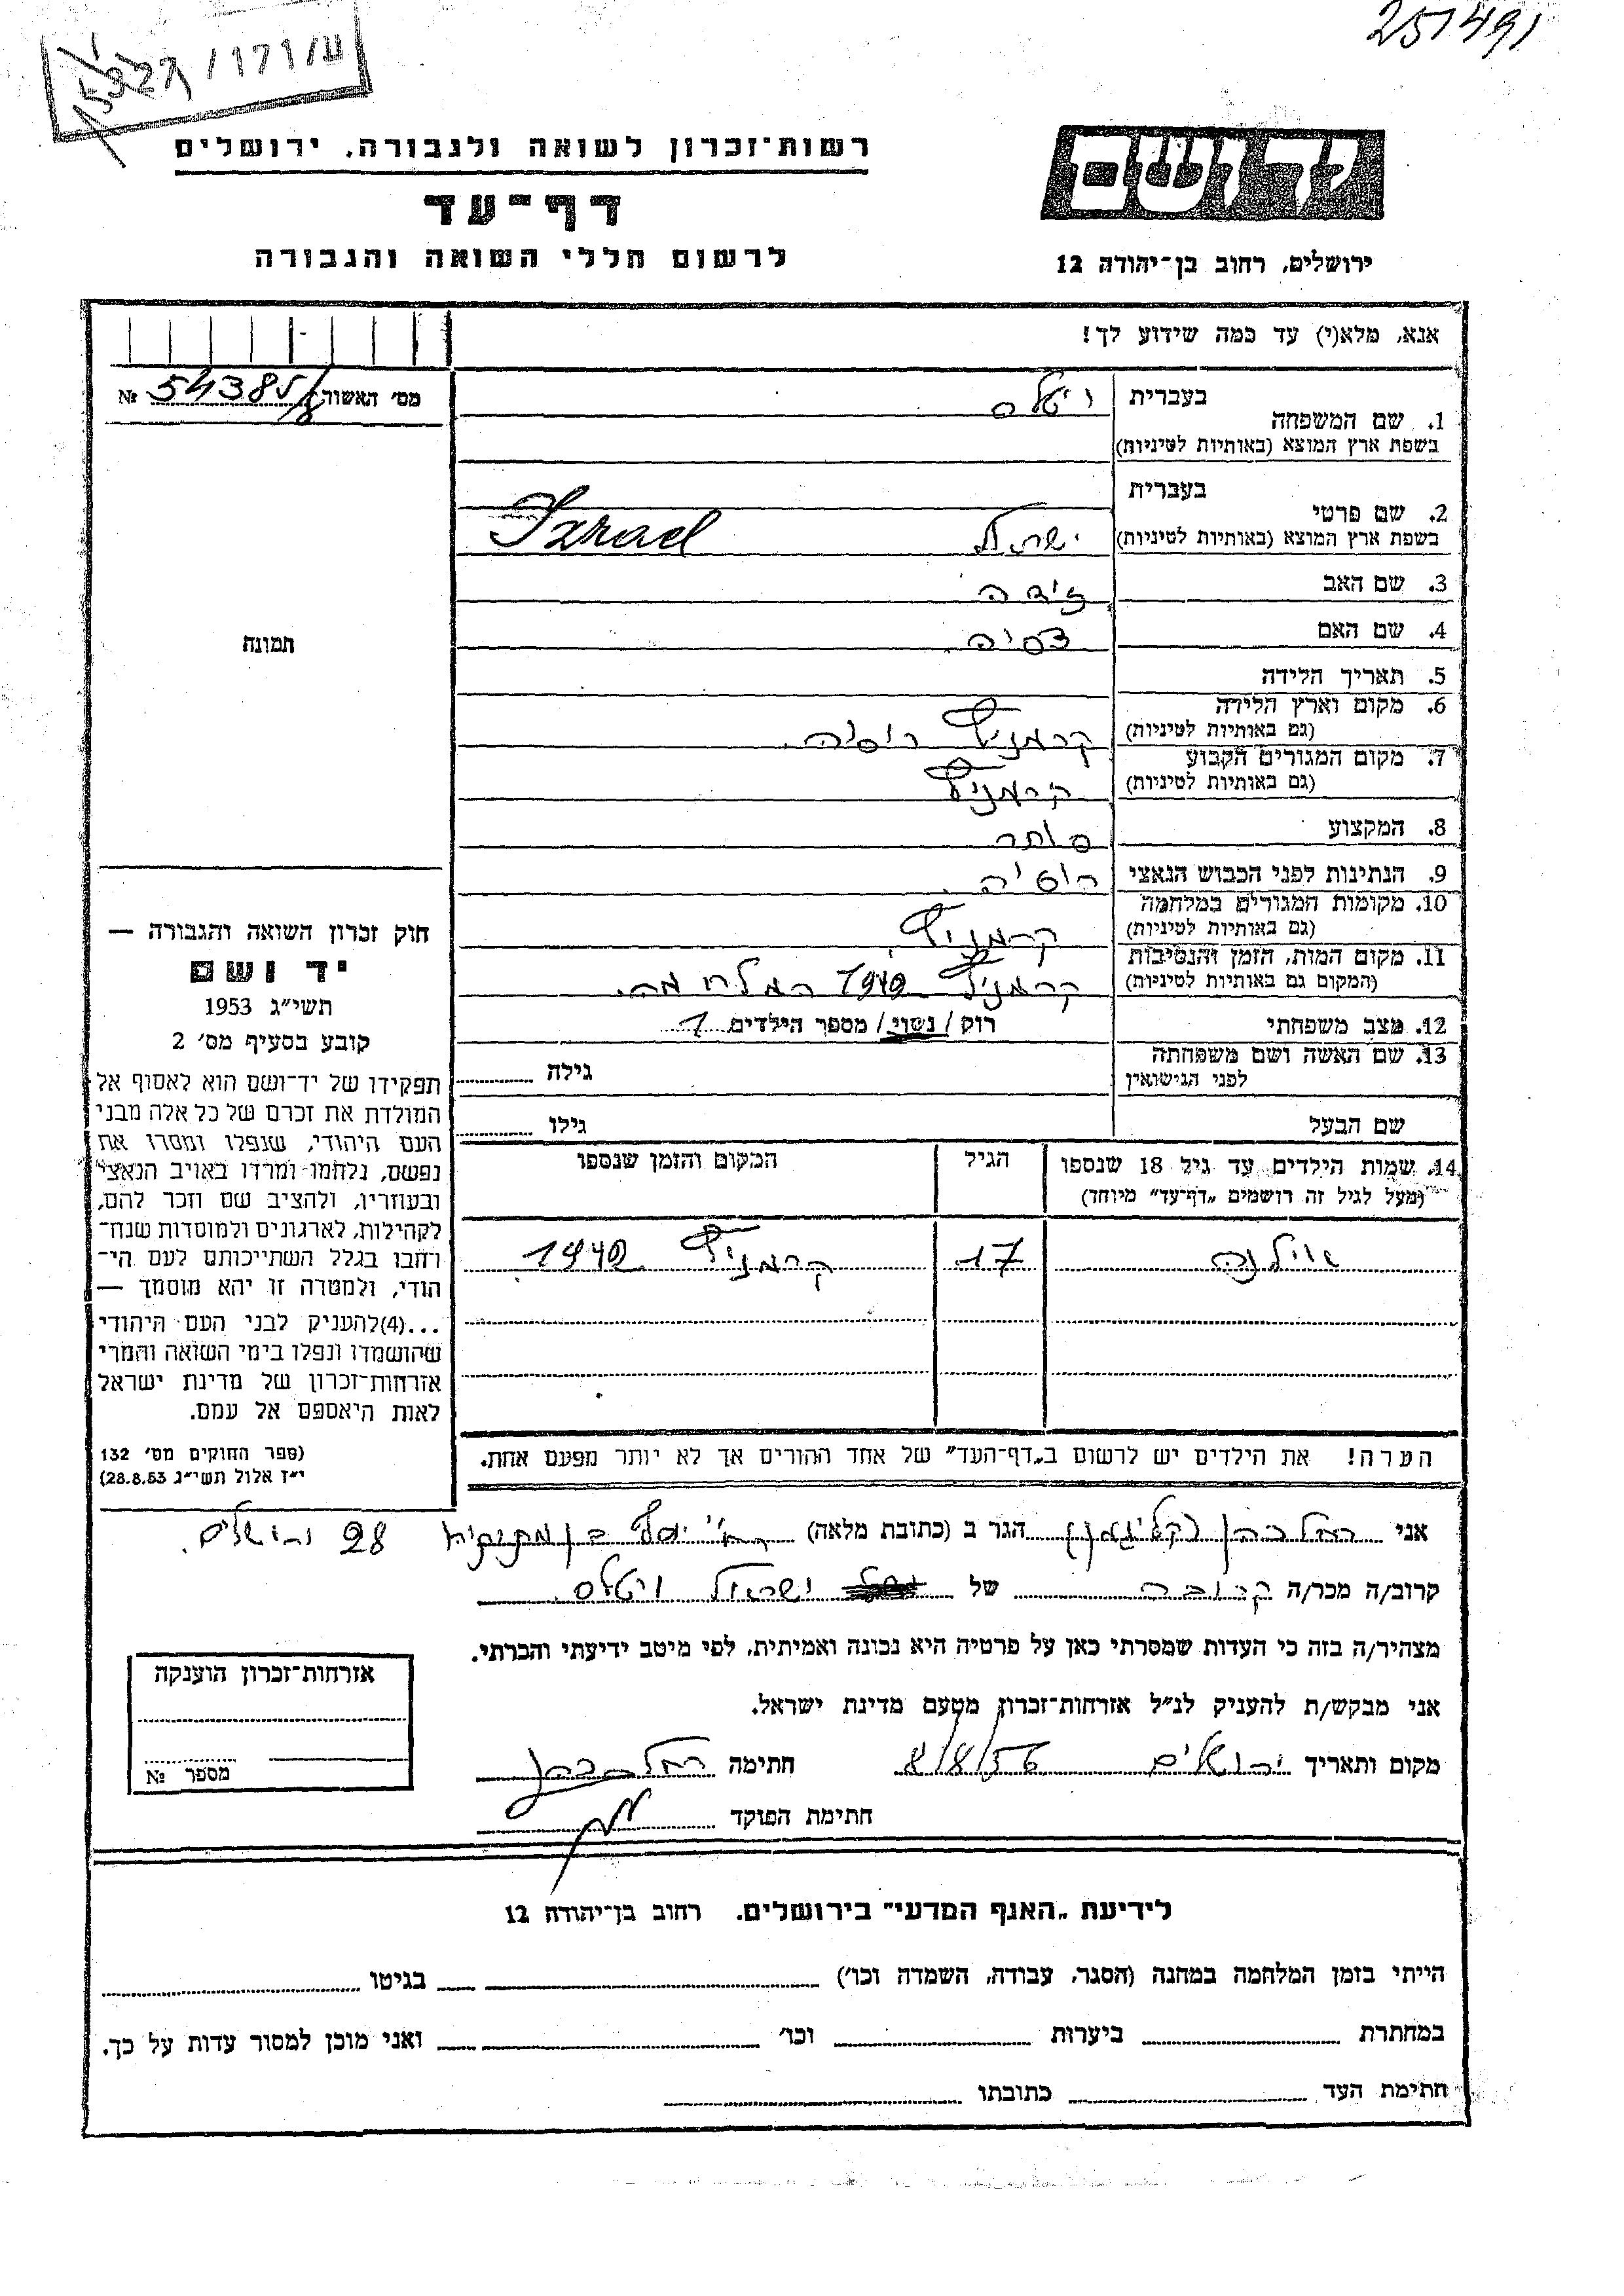 251491
רשות־זכרון לשואה ולגבורה, ירושלים
יד ושם
דף־עד
לרשום חללי השואה והגבורה
ירושלים, רחוב בן־יהודה 12
אנא, מלא(י) עד כמה שידוע לך!
מס׳ האשור № 54385/8
1. שם המשפחה בעברית ויטלס
בשפת ארץ המוצא (באותיות לטיניות)
2. שם פרטי בעברית
בשפת ארץ המוצא (באותיות לטיניות) ישראל Izrael
3. שם האב
4. שם האם
5. תאריך הלידה
6. מקום וארץ הלידה (גם באותיות לטיניות) קרמניץ רוסיה.
7. מקום המגורים הקבוע (גם באותיות לטיניות) קרמניץ
8. המקצוע סוחר
9. הנתינות לפני הכבוש הנאצי רוסיה
10. מקומות המגורים במלחמה (גם באותיות לטיניות) קרמניץ
11. מקום המות, הזמן והנסיבות (המקום גם באותיות לטיניות) קרמניץ 1942 המלחמה.
12. מצב משפחתי רוק / נשוי / מספר הילדים 1
13. שם האשה ושם משפחתה לפני הנישואין גילה
שם הבעל גילו
14. שמות הילדים עד גיל 18 שנספו הגיל המקום והזמן שנספו
(מעל לגיל זה רושמים „דף־עד״ מיוחד)
17 קרמניץ 1942
הערה! את הילדים יש לרשום ב„דף־העד״ של אחד ההורים אך לא יותר מפעם אחת.
תמונה
חוק זכרון השואה והגבורה —
יד ושם
תשי״ג 1953
קובע בסעיף מס׳ 2
תפקידו של יד־ושם הוא לאסוף אל
המולדת את זכרם של כל אלה מבני
העם היהודי, שנפלו ומסרו את
נפשם, נלחמו ומרדו באויב הנאצי
ובעוזריו, ולהציב שם וזכר להם,
לקהילות, לארגונים ולמוסדות שנח־
רחבו בגלל השתייכותם לעם הי־
הודי, ולמטרה זו יהא מוסמך —
...(4)להעניק לבני העם היהודי
שהושמדו ונפלו בימי השואה והמרי
אזרחות־זכרון של מדינת ישראל
לאות היאספם אל עמם.
(ספר החוקים מס׳ 132
י״ז אלול תשי״ג 28.8.53)
אני רחל כהן (קליגמן) הגר ב (כתובת מלאה) יוסף בן מתתיהו 28 ירושלים.
קרוב/ה מכר/ה קרובה של ישראל ויטלס
מצהיר/ה בזה כי העדות שמסרתי כאן על פרטיה היא נכונה ואמיתית, לפי מיטב ידיעתי והכרתי.
אני מבקש/ת להעניק לנ״ל אזרחות־זכרון מטעם מדינת ישראל.
מקום ותאריך ירושלים 8/8/56 חתימה רחל כהן
חתימת הפוקד
אזרחות־זכרון הוענקה
מספר №
לידיעת „האגף המדעי״ בירושלים. רחוב בן־יהודה 12
הייתי בזמן המלחמה במחנה (הסגר, עבודה, השמדה וכו׳) בגיטו
במחתרת ביערות וכו׳ ואני מוכן למסור עדות על כך.
חתימת העד כתובתו